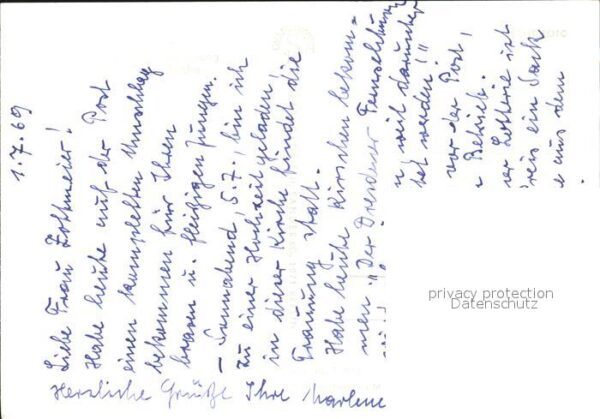 1.7.69
Liebe Frau Zottmeier!
Habe heute auf der Post
einen kompletten Umschlag
bekommen für Ihren
braven u. fleißigen Jungen.
– Sonnabend, 5.7., bin ich
zu einer Hochzeit geladen!
in dieser Kirche findet die
Trauung statt.
Habe heute Kirschen bekom-
men. "Der Dresdener Fernsehturm
weil darunter
werden!"
vor der Post,
Betrieb.
Lotterie ist
ein Sack
aus dem
Herzliche Grüße Ihre Marlene
privacy protection
Datenschutz